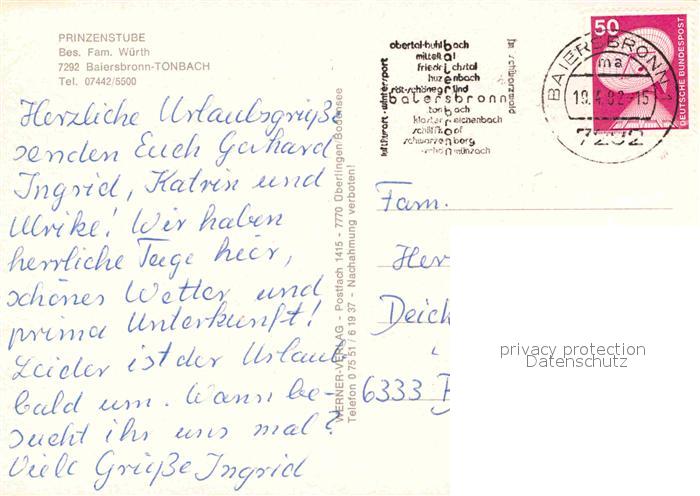 PRINZENSTUBE
Bes. Fam. Würth
7292 Baiersbronn-TONBACH
Tel. 07442/5500
Herzliche Urlaubsgrüße
senden Euch Gerhard
Ingrid, Katrin und
Ulrike! Wir haben
herrliche Tage hier,
schönes Wetter und
prima Unterkunft!
Leider ist der Urlaub
bald um. Wann be-
sucht ihr uns mal?
Viele Grüße Ingrid
WERNER-VERLAG - Postfach 1415 - 7770 Überlingen/Bodensee
Telefon 0 75 51 / 6 19 37 - Nachahmung verboten!
luftkurort - wintersport
obertal-buhlbach
mitteltal
friedrichstal
huzenbach
röt-schönegründ
baiersbronn
tonbach
klosterreichenbach
schliffkopf
schwarzenberg
schönmünzach
im schwarzwald
BAIERSBRONN
ma
19.4.82-15
7292
50
DEUTSCHE BUNDESPOST
Fam.
Her
Deich
6333
privacy protection
Datenschutz